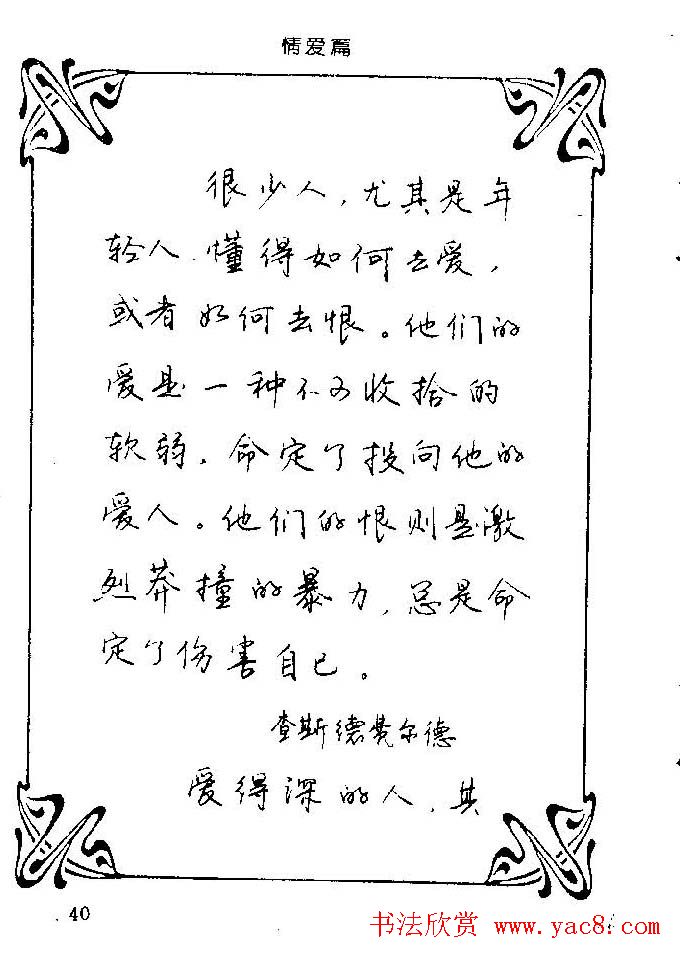 情爱篇
很少人,尤其是年
轻人.懂得如何去爱,
或者如何去恨。他们的
爱是一种不可收拾的
软弱,命定了投向他的
爱人。他们的恨则是激
烈莽撞的暴力,总是命
定了伤害自己。
查斯德费尔德
爱得深的人,其
40
书法欣赏 www.yac8.com